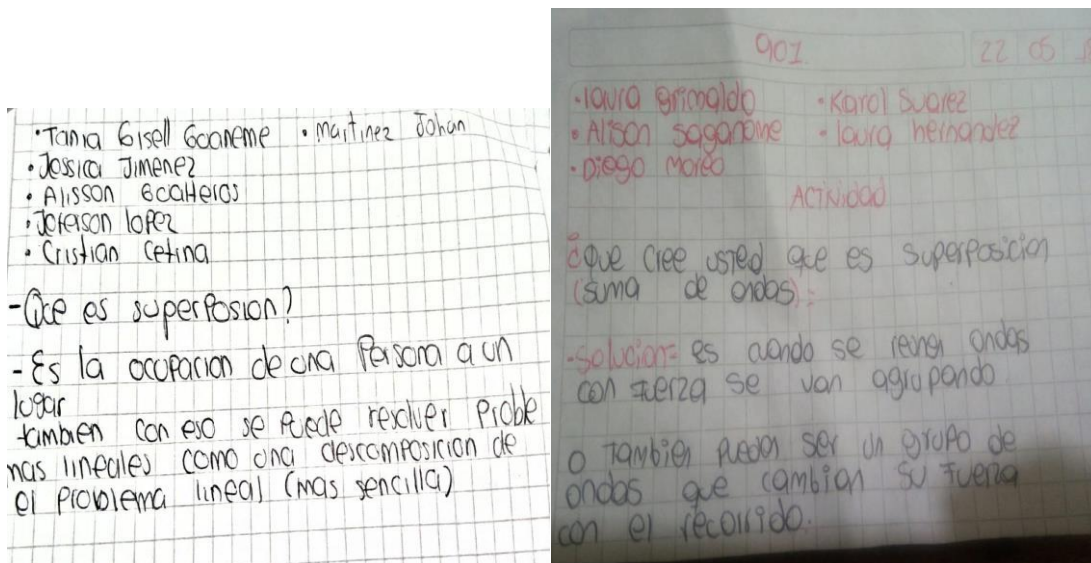 •Tania Gisell Goaneme •Martinez Johan
•Jessica Jimenez
•Alisson
•Jeferson lopez
•Cristian Cetina
-Que es superPosion?
-Es la ocupacion de una Persona a un
lugar
tambien con eso se Puede resolver Proble
mas lineales como una descomposicion de
el Problema lineal (mas sencilla)
901 22 05
•laura grimaldo •Karol Suarez
•Alison saganome •laura hernandez
•Diego
ACTIVIDAD
¿que cree usted que es superposicion
(suma de ondas):
-Solucion= es cuando se reunen ondas
con fuerza se van agrupando
o Tambien pueden ser un grupo de
ondas que cambian su fuerza
con el recorrido.